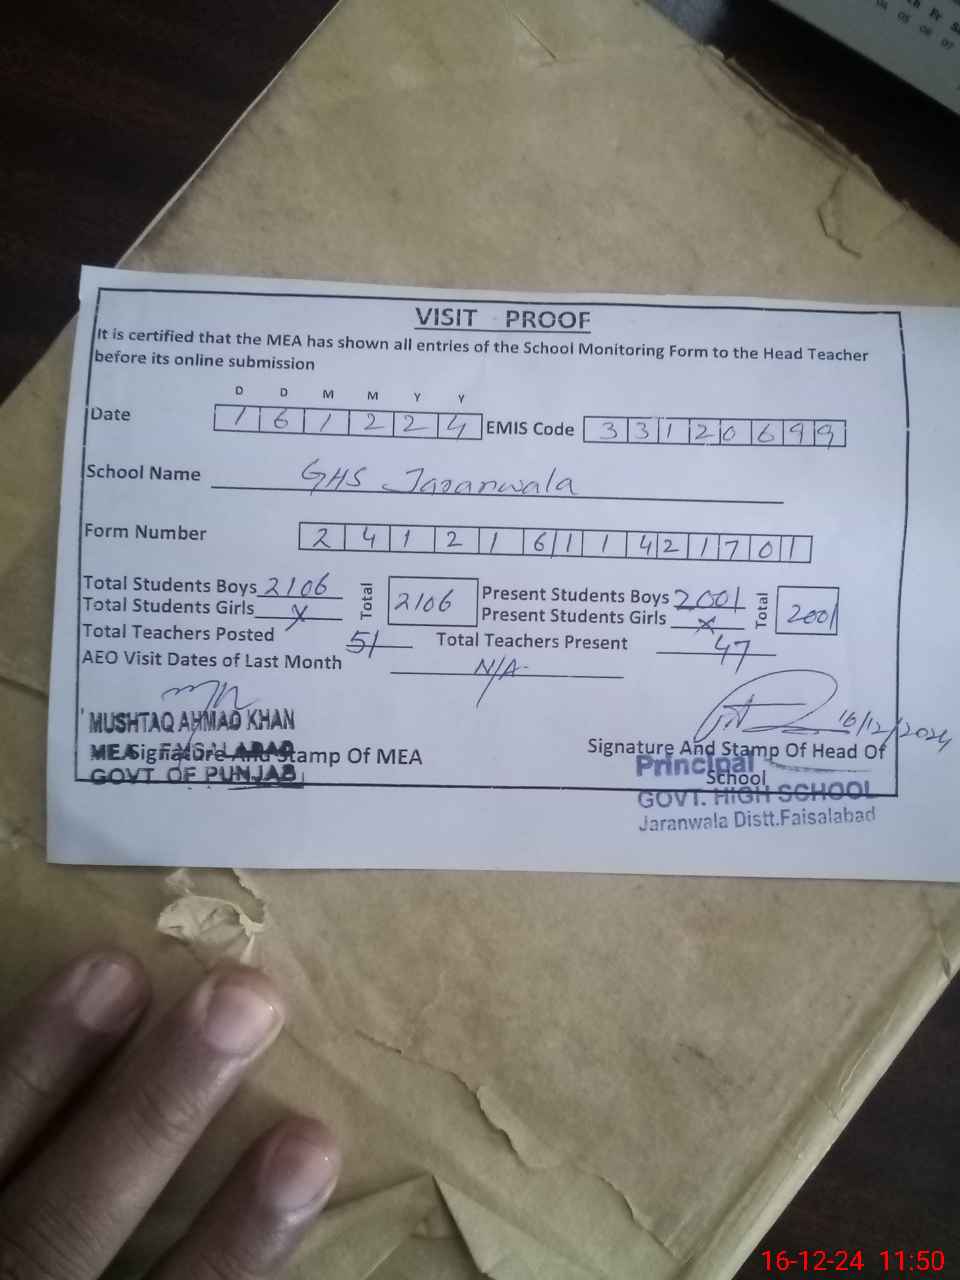 VISIT PROOF
It is certified that the MEA has shown all entries of the School Monitoring Form to the Head Teacher
before its online submission
D D M M Y Y
Date 1 6 1 2 2 4 EMIS Code 3 3 1 2 0 6 9 9
School Name GHS Jaranwala
Form Number 2 4 1 2 1 6 1 1 4 2 1 7 0 1
Total Students Boys 2106 Total 2106 Present Students Boys 2001 Total 2001
Total Students Girls x Present Students Girls x
Total Teachers Posted 51 Total Teachers Present 47
AEO Visit Dates of Last Month N/A
16/12/2024
MUSHTAQ AHMAD KHAN
MEA FAISALABAD
GOVT OF PUNJAB
Signature And Stamp Of MEA
Signature And Stamp Of Head Of
School
Principal
GOVT. HIGH SCHOOL
Jaranwala Distt.Faisalabad
04 05 06 07
16-12-24 11:50